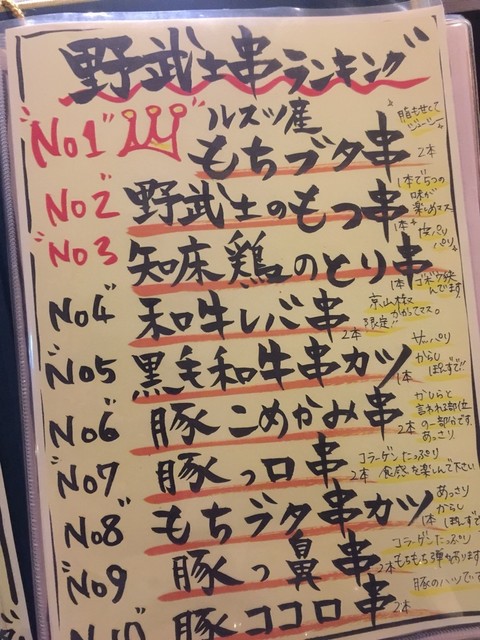 野武士串ランキング
No1 ルスツ産 もちブタ串 2本
脂も甘くて
ジューシー
No2 野武士のもつ串 1本
1本で5つの
味が
楽しめマス
No3 知床鶏のとり串 1本
皮パリ
パリ
ゴボウ挟
んでます
No4 和牛レバ串 2本
京山椒
かかってマス。
限定!!
No5 黒毛和牛串カツ 1本
サッパリ
からし
ぽんずで!!
No6 豚こめかみ串 2本
かしらと
言われる部位
の一部分です。
あっさり
No7 豚っ口串 2本
コラーゲンたっぷり
食感を楽しんで下さい
No8 もちブタ串カツ 1本
あっさり
からし
ぽんずで
No9 豚っ鼻串 2本
コラーゲンたっぷり
もちもち弾力あります
No10 豚ココロ串 2本
豚のハツです